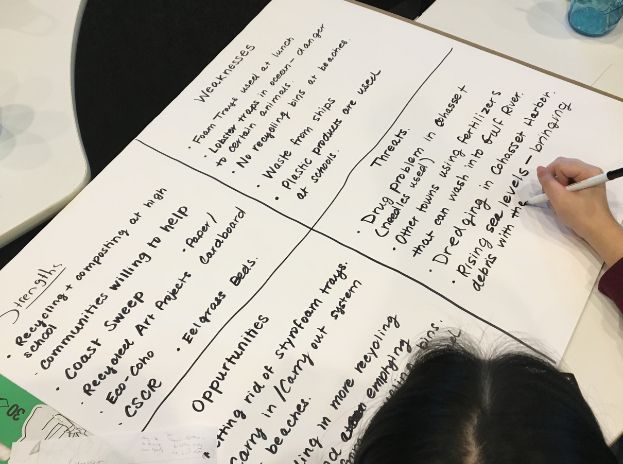 Weaknesses
• Foam Trays used at lunch
• Lobster traps in ocean - danger
to certain animals.
• No recycling bins at beaches.
• Waste from ships
• Plastic products are used
at schools.
Threats.
• Drug problem in Cohasset
(needles used)
• Other towns using fertilizers
that can wash into Gulf River.
• Dredging in Cohasset Harbor.
• Rising sea levels - bringing
debris with the
Strengths
• Recycling + composting at high
school
• Communities willing to help
• Coast Sweep
• Recycled Art Projects
• Eco-Coho
• CSCR
• Paper/
Cardboard
• Eelgrass Beds.
Oppurtunities
tting rid of styrofoam trays.
Carry in / Carry out system
beaches.
ding in more recycling
emptying
bins.
30